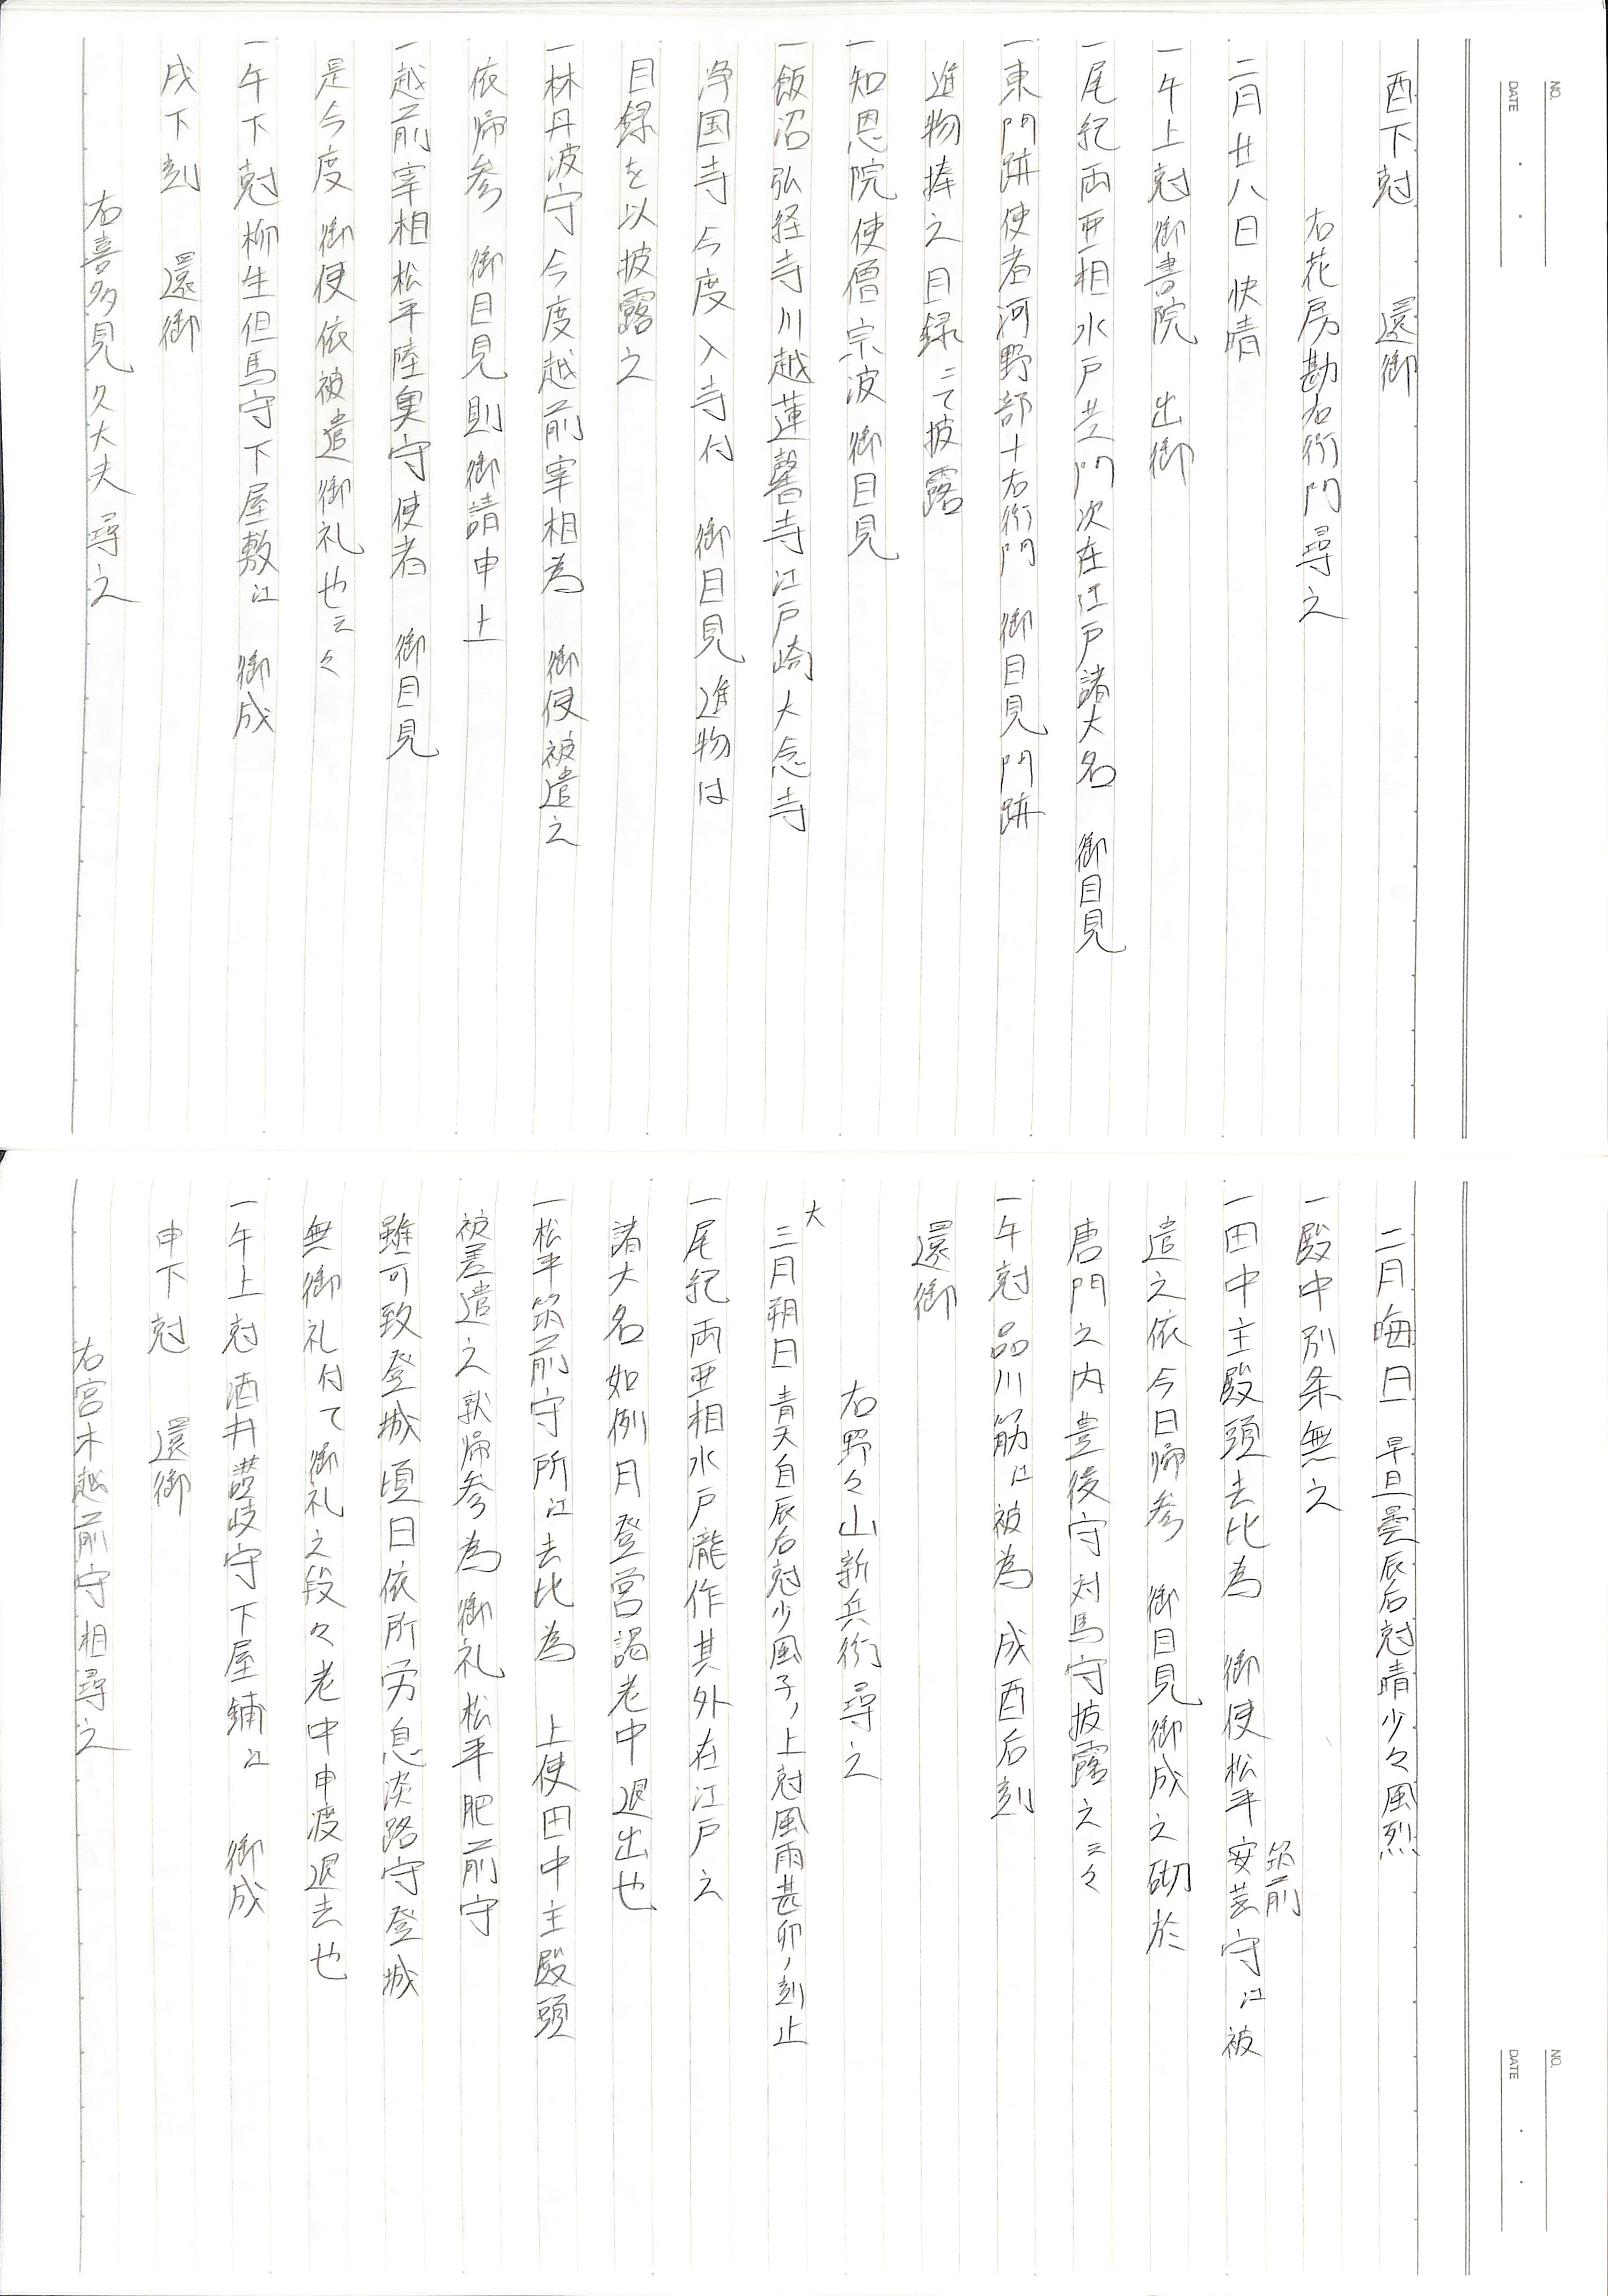 NO.
DATE
酉下尅　還御
右花房勘右衛門尋之
二月廿八日　快晴
一午上尅御書院　出御
一尾紀両亜相水戸黄門次在江戸諸大名　御目見
一東門跡使者河野部十右衛門　御目見門跡
進物捧之目録ニて披露
一知恩院使僧宗波御目見
一飯沼弘経寺川越蓮馨寺江戸崎大念寺
浄国寺今度入寺付　御目見進物は
目録を以披露之
一林丹波守今度越前宰相為　御使被遣之
依帰参　御目見則御請申上
一越前宰相松平陸奥守使者　御目見
是今度御使依被遣御礼也云々
一午下尅柳生但馬守下屋敷江　御成
戌下刻　還御
右喜多見久大夫尋之
NO.
DATE
二月晦日　早旦曇辰后尅晴少々風烈
一殿中別条無之
一田中主殿頭去比為　御使松平安芸守江被
筑前
遣之依今日帰参　御目見御成之砌於
唐門之内豊後守対馬守披露之云々
一午尅品川筋江被為　成酉后刻
還御
右野々山新兵衛尋之
大
三月朔日　青天自辰后尅少風子ノ上尅風雨甚卯ノ刻止
一尾紀両亜相水戸瀧作其外在江戸之
諸大名如例月登営謁老中退出也
一松平筑前守所江去比為　上使田中主殿頭
被差遣之就帰参為御礼松平肥前守
雖可致登城頃日依所労息淡路守登城
無御礼付て御礼之段々老中申渡退去也
一午上尅酒井讃岐守下屋鋪江　御成
申下尅　還御
右宮木越前守相尋之